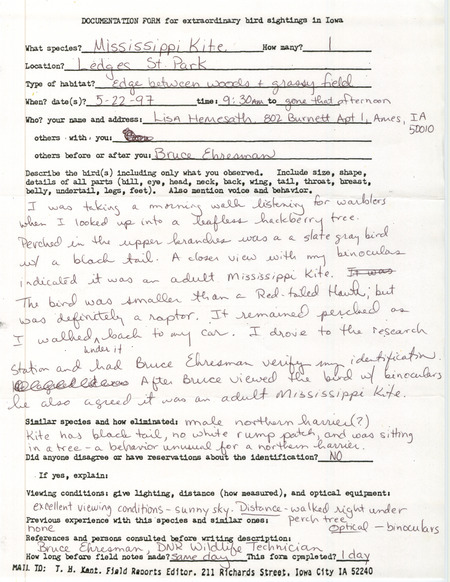 DOCUMENTATION FORM for extraordinary bird sightings in Iowa
What species? Mississippi Kite How many? 1
Location? Ledges St. Park
Type of habitat? Edge between woods + grassy field
When? date(s)? 5-22-97 time: 9:30am to gone that afternoon
Who? your name and address: Lisa Hemesath, 802 Burnett Apt 1, Ames, IA
50010
others with you:
others before or after you: Bruce Ehresman
Describe the bird(s) including only what you observed. Include size, shape,
details of all parts (bill, eye, head, neck, back, wing, tail, throat, breast,
belly, undertail, legs, feet). Also mention voice and behavior.
I was taking a morning walk listening for warblers
when I looked up into a leafless hackberry tree.
Perched in the upper branches was a a slate gray bird
w/ a black tail. A closer view with my binoculars
indicated it was an adult Mississippi Kite. It was
The bird was smaller than a Red-tailed Hawk, but
was definitely a raptor. It remained perched as
I walked back to my car. I drove to the research
under it
station and had Bruce Ehresman verify my identification.
After Bruce viewed the bird w/ binoculars
he also agreed it was an adult Mississippi Kite.
Similar species and how eliminated: male northern harrier(?)
Kite has black tail, no white rump patch, and was sitting
in a tree - a behavior unusual for a northern harrier.
Did anyone disagree or have reservations about the identification? NO
If yes, explain:
Viewing conditions: give lighting, distance (how measured), and optical equipment:
excellent viewing conditions - sunny sky. Distance - walked right under
Previous experience with this species and similar ones: perch tree
none Optical - binoculars
References and persons consulted before writing description:
Bruce Ehresman, DNR Wildlife Technician
How long before field notes made? same day This form completed? 1 day
MAIL TO: T. H. Kent, Field Reports Editor, 211 Richards Street, Iowa City IA 52240